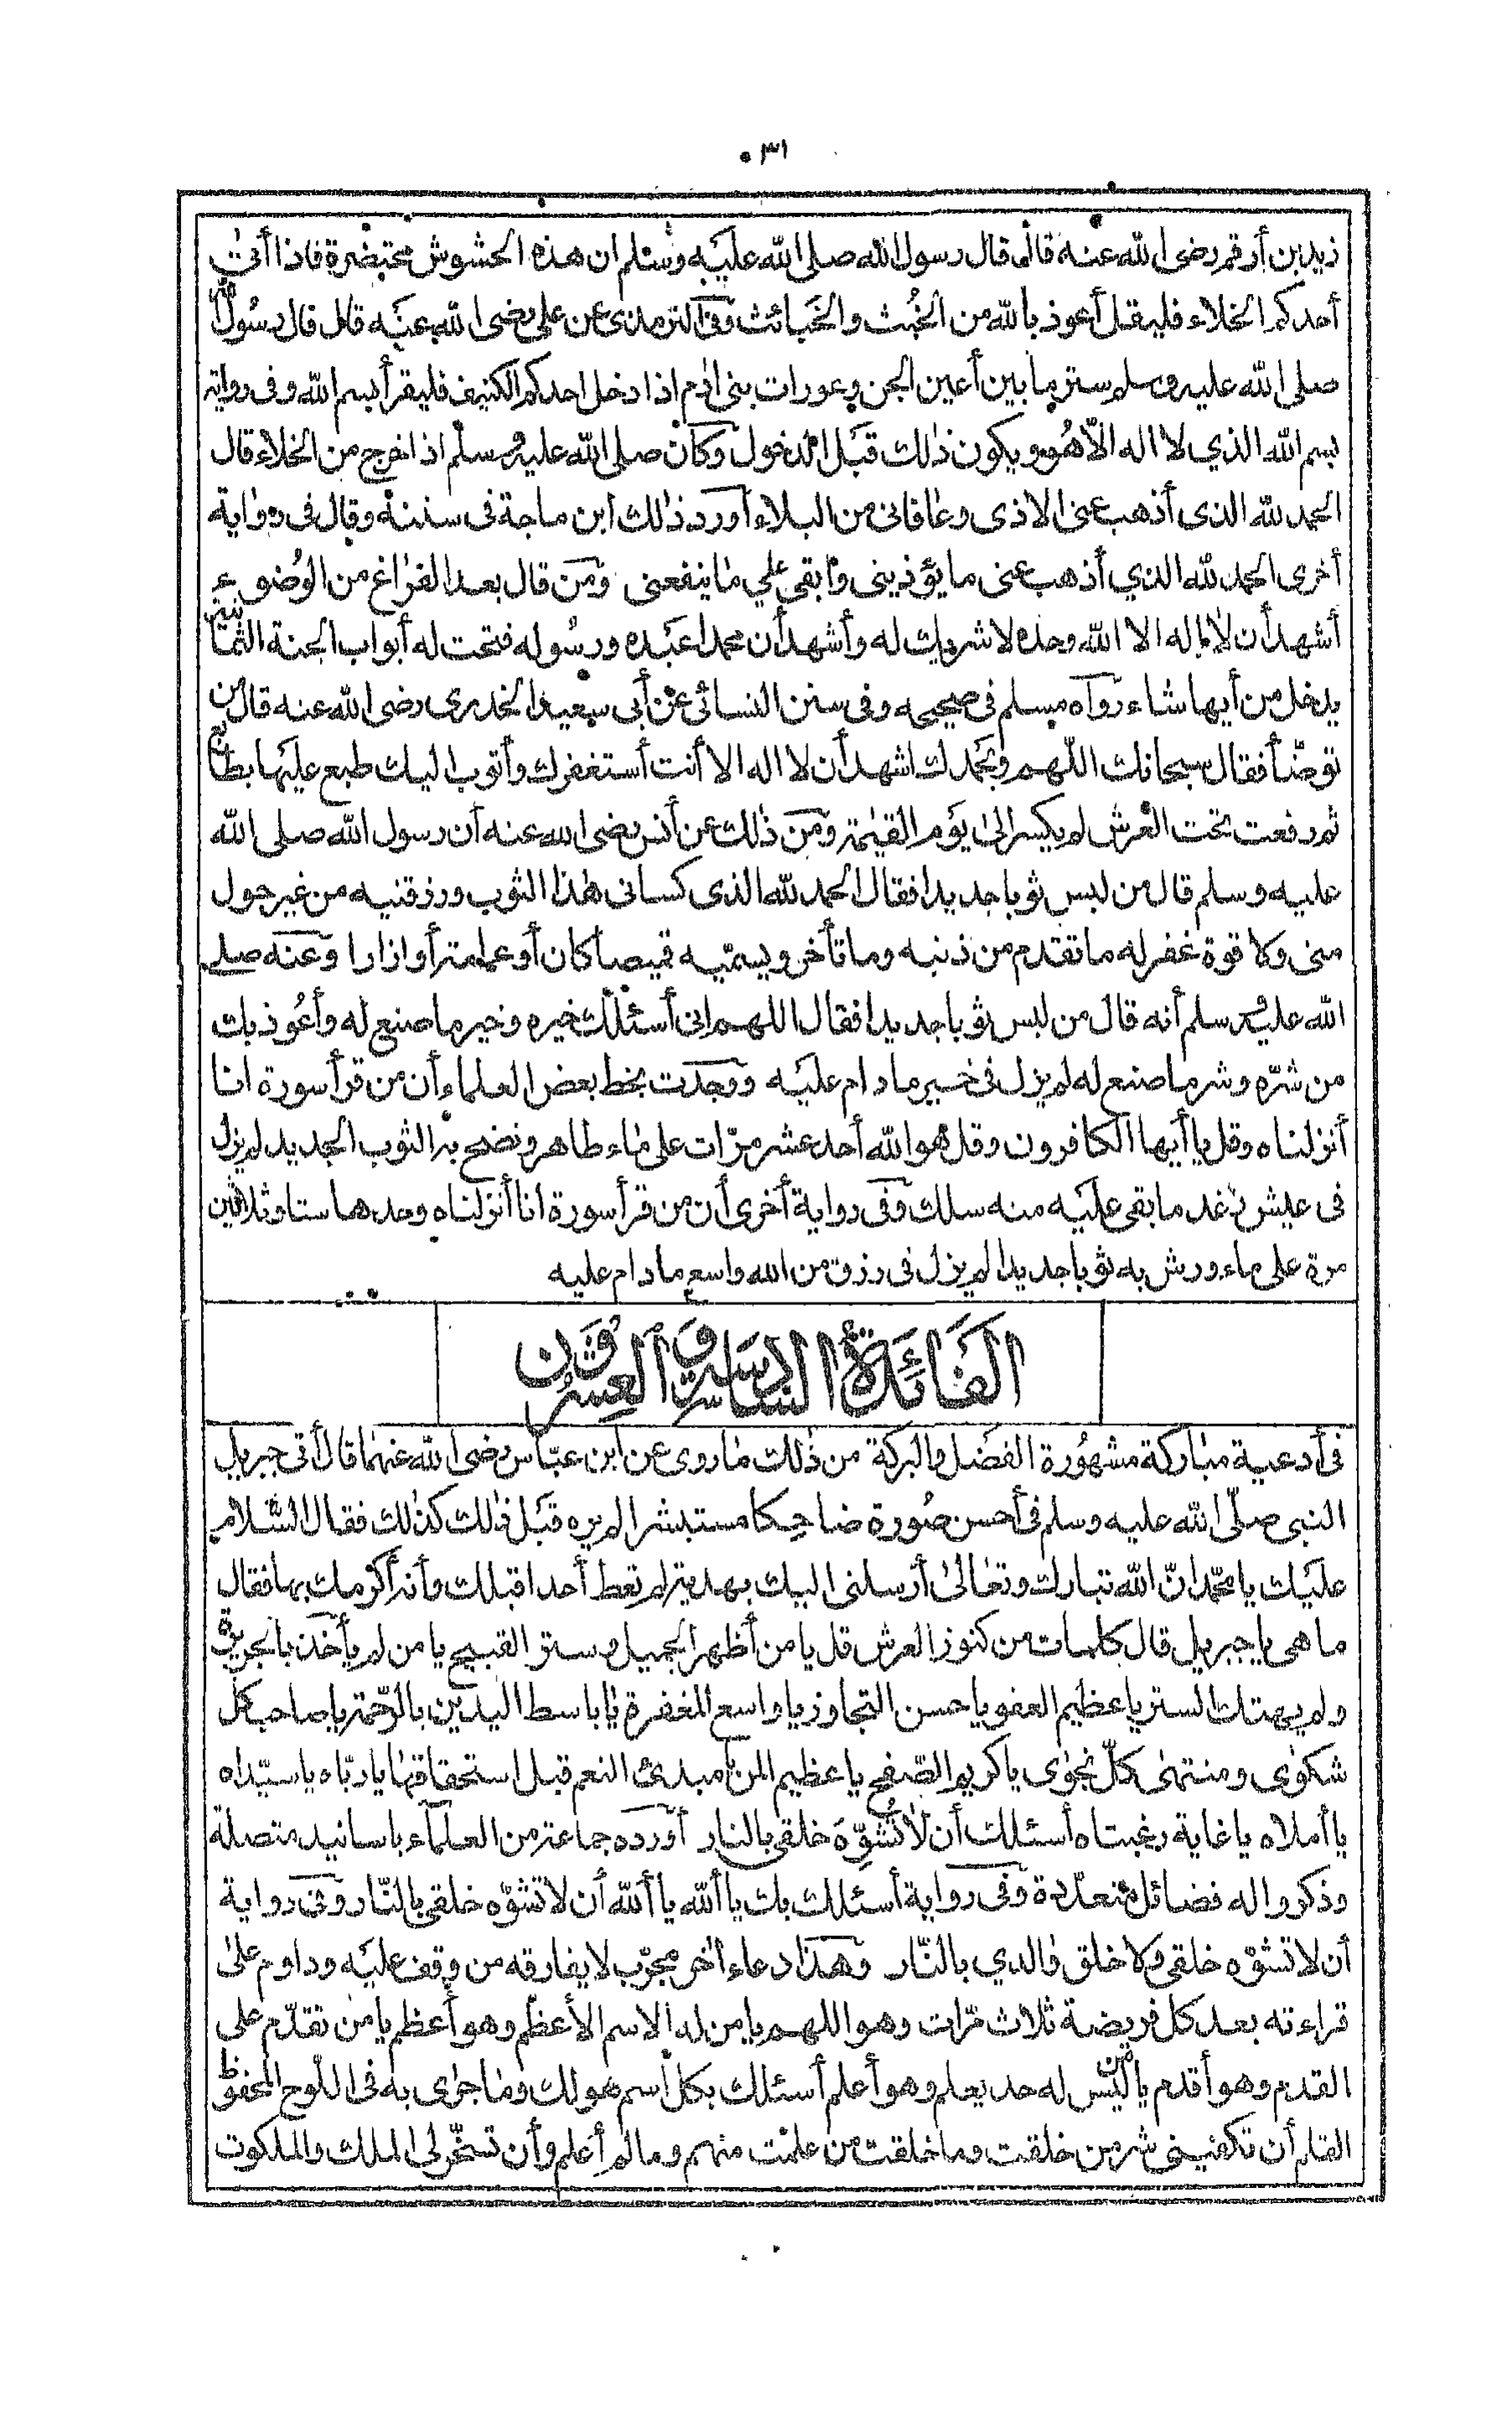 ٣١
زيد بن أرقم رضى الله عنه قال قال رسول الله صلى الله عليه وسلم ان هذه الحشوش محتضرة فاذا أتى
أحدكم الخلاء فليقل أعوذ بالله من الخُبث والخَبائث وفى الترمذى عن على رضى الله عنه قال قال رسُول الله
صلى الله عليه وسلم ستر ما بين أعين الجن وعورات بنى اٰدم اذا دخل احدكم الكنيف فليقرأ بسم الله وفى رواية
بسم الله الذي لا اله الّا هُو ويكون ذٰلك قبَل الدخول وكان صلى الله عليه وسلم اذا خرج من الخلاء قال
الحمد لله الذى أذهب عنى الاذى وعافانى من البلاء أورد ذٰلك ابن ماجة فى سننه وقال فى رواية
أخرى الحمد لله الذي أذهب عنى ما يؤذينى وأبقى علي ما ينفعنى ومن قال بعد الفراغ من الوُضوء
أشهد أن لا اله الا الله وحده لا شريك له وأشهد أن محمدا عبده ورسُوله فتحت له أبواب الجنة الثمانية
يدخل من أيها شاء رواه مسلم فى صحيحه وفى سنن النسائى عن أبى سعيد الخدرى رضى الله عنه قال من
توضّأ فقال سبحانك اللّهم وبحَمدك اشهد أن لا اله الا أنت أستغفرك وأتوب اليك طبع عليها بطابع
ثم رفعت تحت العرش لم يكسر الىٰ يوم القيٰمة ومن ذٰلك عن أنس رضى الله عنه أن رسول الله صلى الله
عليه وسلم قال من لبس ثوبا جديدا فقال الحمد لله الذى كسانى هٰذا الثوب ورزقنيه من غير حول
منى ولا قوة غفر له ما تقدم من ذنبه وما تأخر ويسمّيه قميصا كان أو عمامة أو ازارا وعنه صلى
الله عليه وسلم أنه قال من لبس ثوبا جديدا فقال اللهم انى أسئلك خيره وخير ما صنع له وأعُوذ بك
من شرّه وشر ما صنع له لم يزل فى خير ما دام عليه ووجدت بخط بعض العلماء أن من قرأ سورة انا
أنزلناه وقل يا أيها الكافرون وقل هو الله أحد عشر مرّات على ماء طاهر ونضح به الثوب الجديد لم يزل
فى عيش رغد ما بقى عليه منه سلك وفى رواية أخرى أن من قرأ سورة انا أنزلناه وحدها ستا وثلاثين
مرة على ماء ورش به ثوبا جديدا لم يزل فى رزق من الله واسع ما دام عليه
الفَائدة السادسة والعشرون
فى أدعية مباركة مشهُورة الفضل والبركة من ذٰلك ما روى عن ابن عبّاس رضى الله عنهما قال أتى جبريل
النبى صلّى الله عليه وسلم فى أحسن صُورة ضاحِكا مستبشرا لم يره قبَل ذٰلك كذٰلك فقال السَّلام
عليك يا محمّد انّ الله تبارك وتعالىٰ أرسلنى اليك بهدية لم تعط أحدا قبلك وأنه أكرمك بها فقال
ما هى يا جبريل قال كلمات من كنوز العرش قل يا من أظهر الجميل وستر القبيح يا من لم يأخذ بالجريرة
ولم يهتك الستر يا عظيم العفو يا حسن التجاوز يا واسع المغفرة يا باسط اليدين بالرّحمة يا صاحب كل
شكوٰى ومنتهىٰ كلّ نجوٰى يا كريم الصّفح يا عظيم المن يا مبدئ النعم قبل استحقاقها يا ربّاه يا سيّداه
يا أملاه يا غاية رغبتاه أسئلك أن لا تُشوِّه خلقى بالنار أورده جماعة من العلماء باسانيد متصلة
وذكروا له فضائل متعدّدة وفى رواية أسئلك بك يا ألله يا ألله أن لا تشوّه خلقى بالنّار وفى رواية
أن لا تشوّه خلقى ولا خلق والدي بالنّار وهذا دعاء اٰخر مجرّب لا يفارقه من وقف عليه وداوم علىٰ
قراءته بعد كل فريضة ثلاث مرّات وهو اللهم يا من له الاسم الأعظم وهو أعظم يا من تقدّم على
القدم وهو أقدم يا من ليس له حد يعلم وهو أعلم أسئلك بكل اسم هو لك وما جرٰى به فى اللّوح المحفوظ
القلم أن تكفينى شر من خلقت وما خلقت من علمت منهم وما لم أعلم وأن تسخّر لى الملك والملكوت